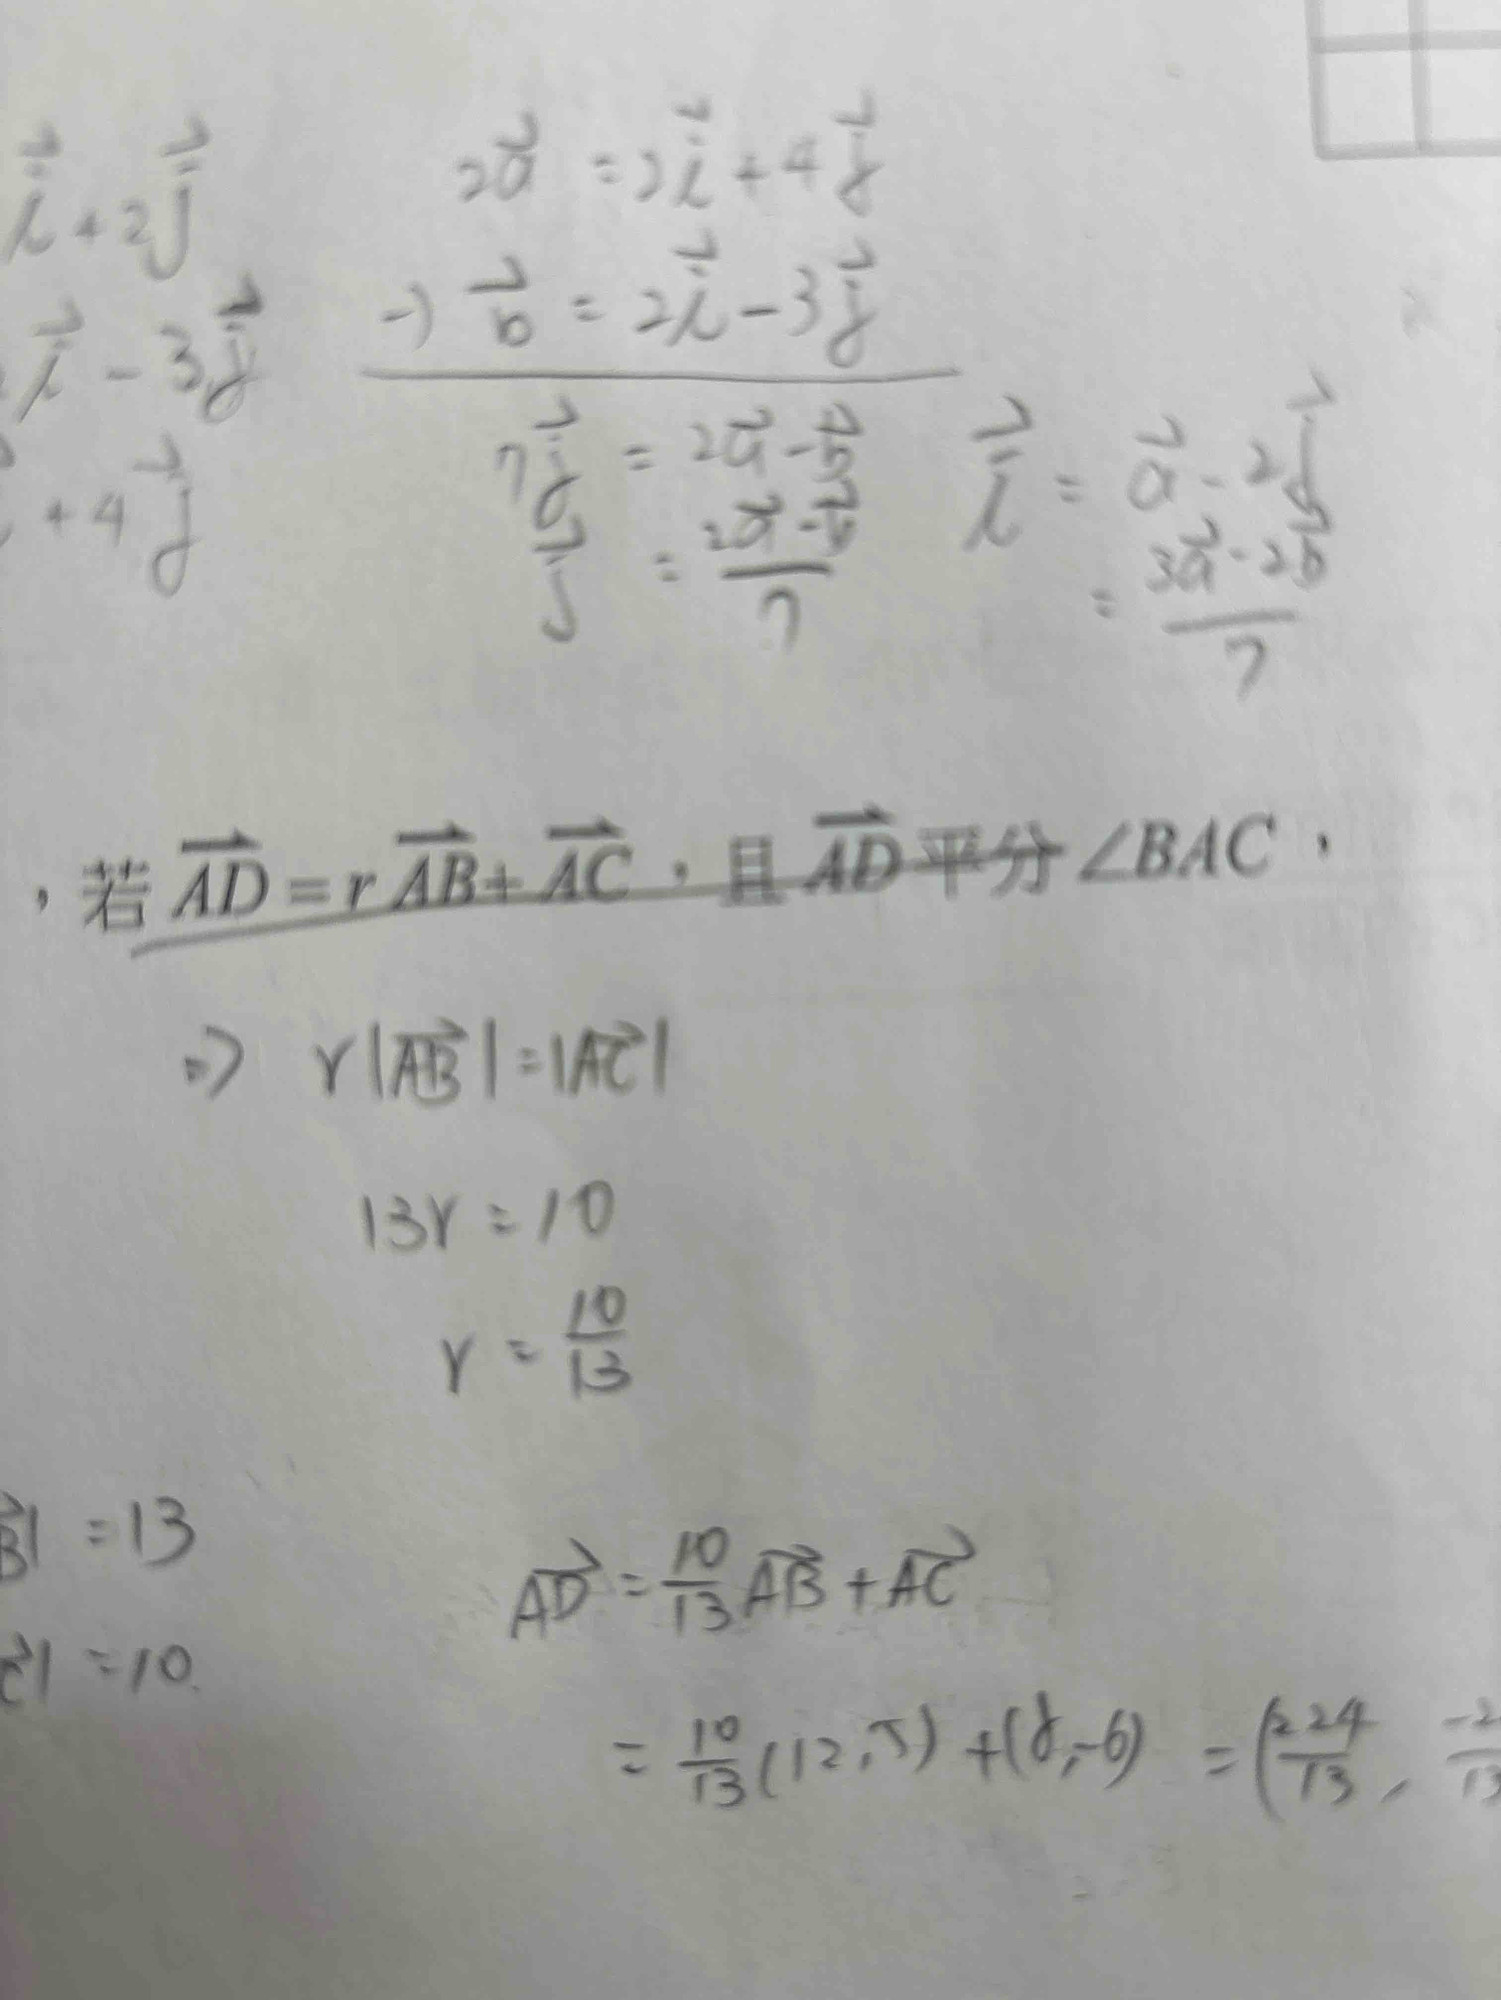 i⃗ + 2j⃗
2a⃗ = 2i⃗ + 4j⃗
i⃗ - 3j⃗
-) b⃗ = 2i⃗ - 3j⃗
+ 4j⃗
7j⃗ = 2a⃗ - b⃗
j⃗ = (2a⃗ - b⃗)/7
i⃗ = a⃗ - 2j⃗
= (3a⃗ - 2b⃗)/7
，若 AD⃗ = r AB⃗ + AC⃗，且 AD⃗ 平分 ∠BAC，
⇒ r|AB⃗| = |AC⃗|
13r = 10
r = 10/13
B⃗| = 13
C⃗| = 10
AD⃗ = 10/13 AB⃗ + AC⃗
= 10/13 (12, 5) + (8, -6) = (224/13, -2 /13